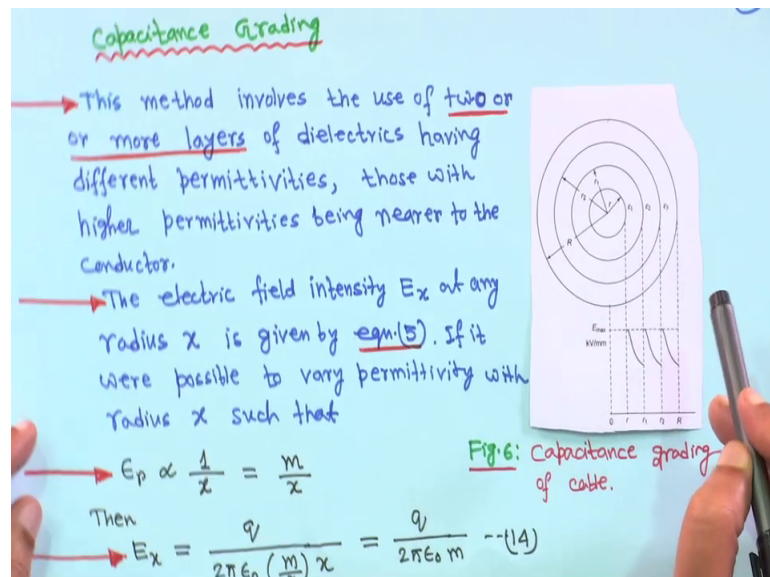 Capacitance Grading
This method involves the use of two or
or more layers of dielectrics having
different permittivities, those with
higher permittivities being nearer to the
conductor.
The electric field intensity Ex at any
radius x is given by eqn.(5). If it
were possible to vary permittivity with
radius x such that
Ep ∝ 1/x = m/x
Then
Ex = q / 2πϵ0 (m/x) x = q / 2πϵ0 m --(14)
r1
r
r2
ε1 ε2 ε3
R
Emax
kV/mm
0 r r1 r2 R
Fig.6: Capacitance grading
of cable.